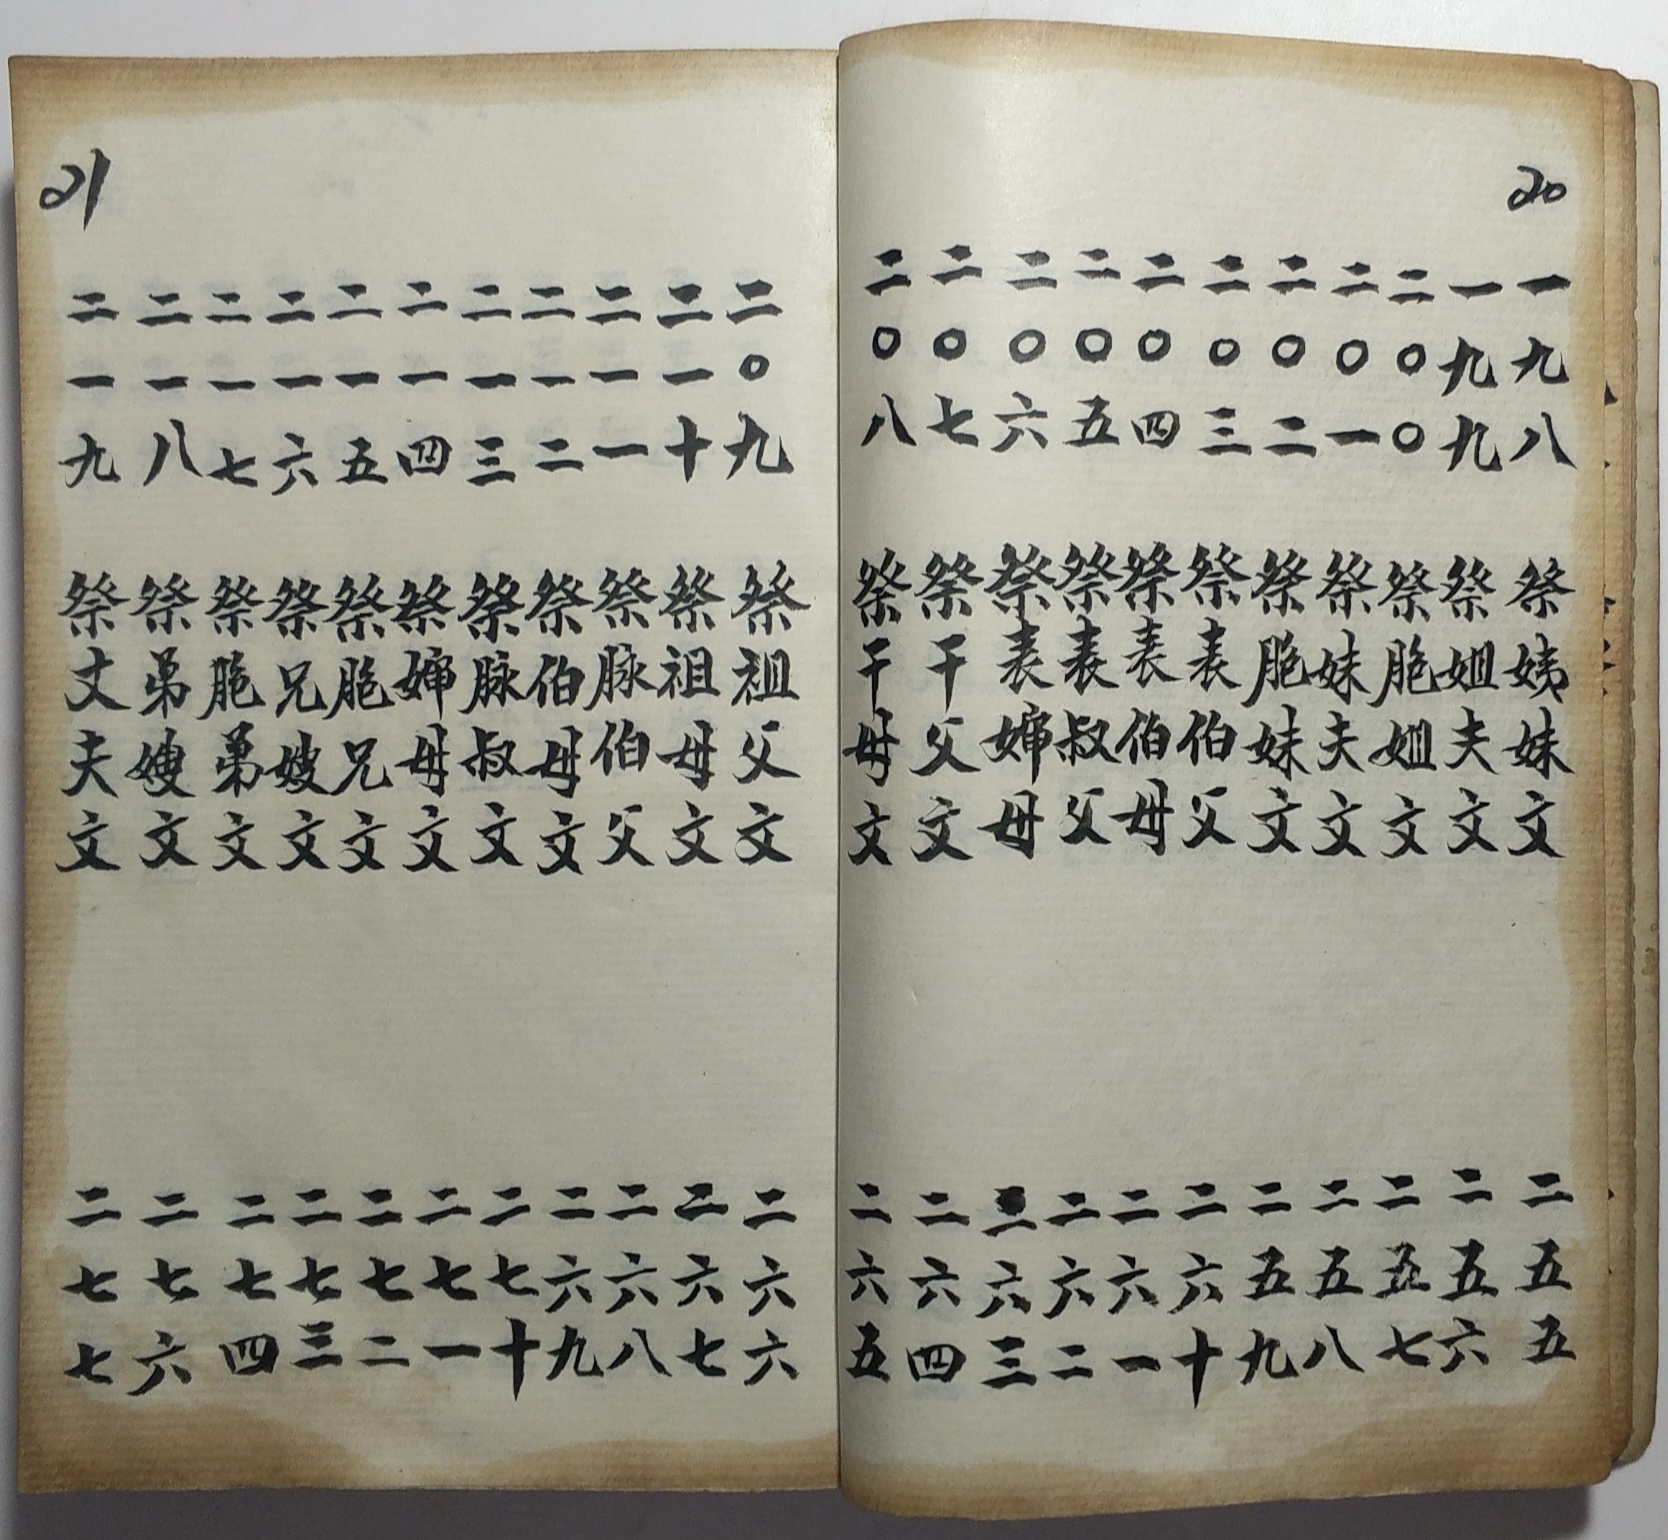 20
一九八 祭姨妹文 二五五
一九九 祭姐夫文 二五六
二〇〇 祭胞姐文 二五七
二〇一 祭妹夫文 二五八
二〇二 祭胞妹文 二五九
二〇三 祭表伯父 二六十
二〇四 祭表伯母 二六一
二〇五 祭表叔父 二六二
二〇六 祭表婶母 二六三
二〇七 祭干父文 二六四
二〇八 祭干母文 二六五
21
二〇九 祭祖父文 二六六
二一十 祭祖母文 二六七
二一一 祭脉伯父 二六八
二一二 祭伯母文 二六九
二一三 祭脉叔文 二七十
二一四 祭婶母文 二七一
二一五 祭胞兄文 二七二
二一六 祭兄嫂文 二七三
二一七 祭胞弟文 二七四
二一八 祭弟嫂文 二七六
二一九 祭丈夫文 二七七